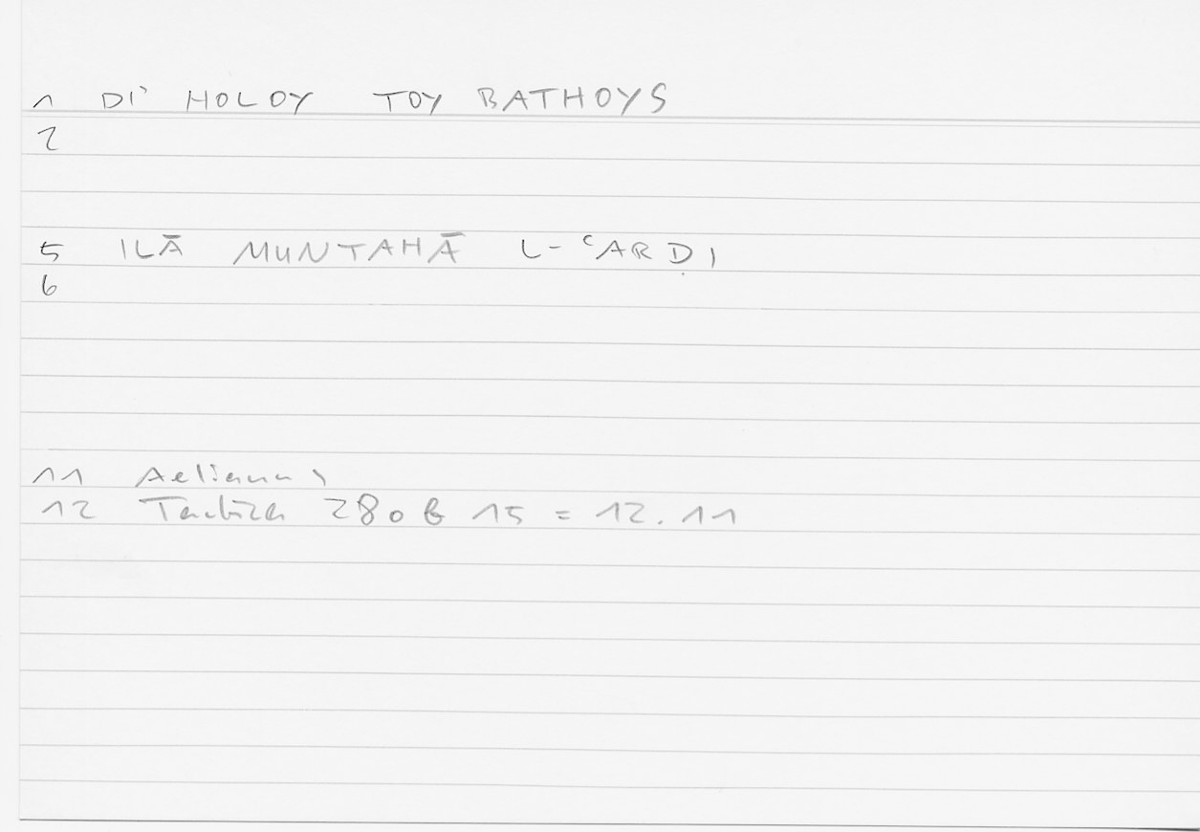 1 DI' HOLOY TOY BATHOYS
2
5 ILĀ MUNTAHĀ L-ʿARḌI
6
11 Aelianus
12 Tactica 280 b 15 = 12.11